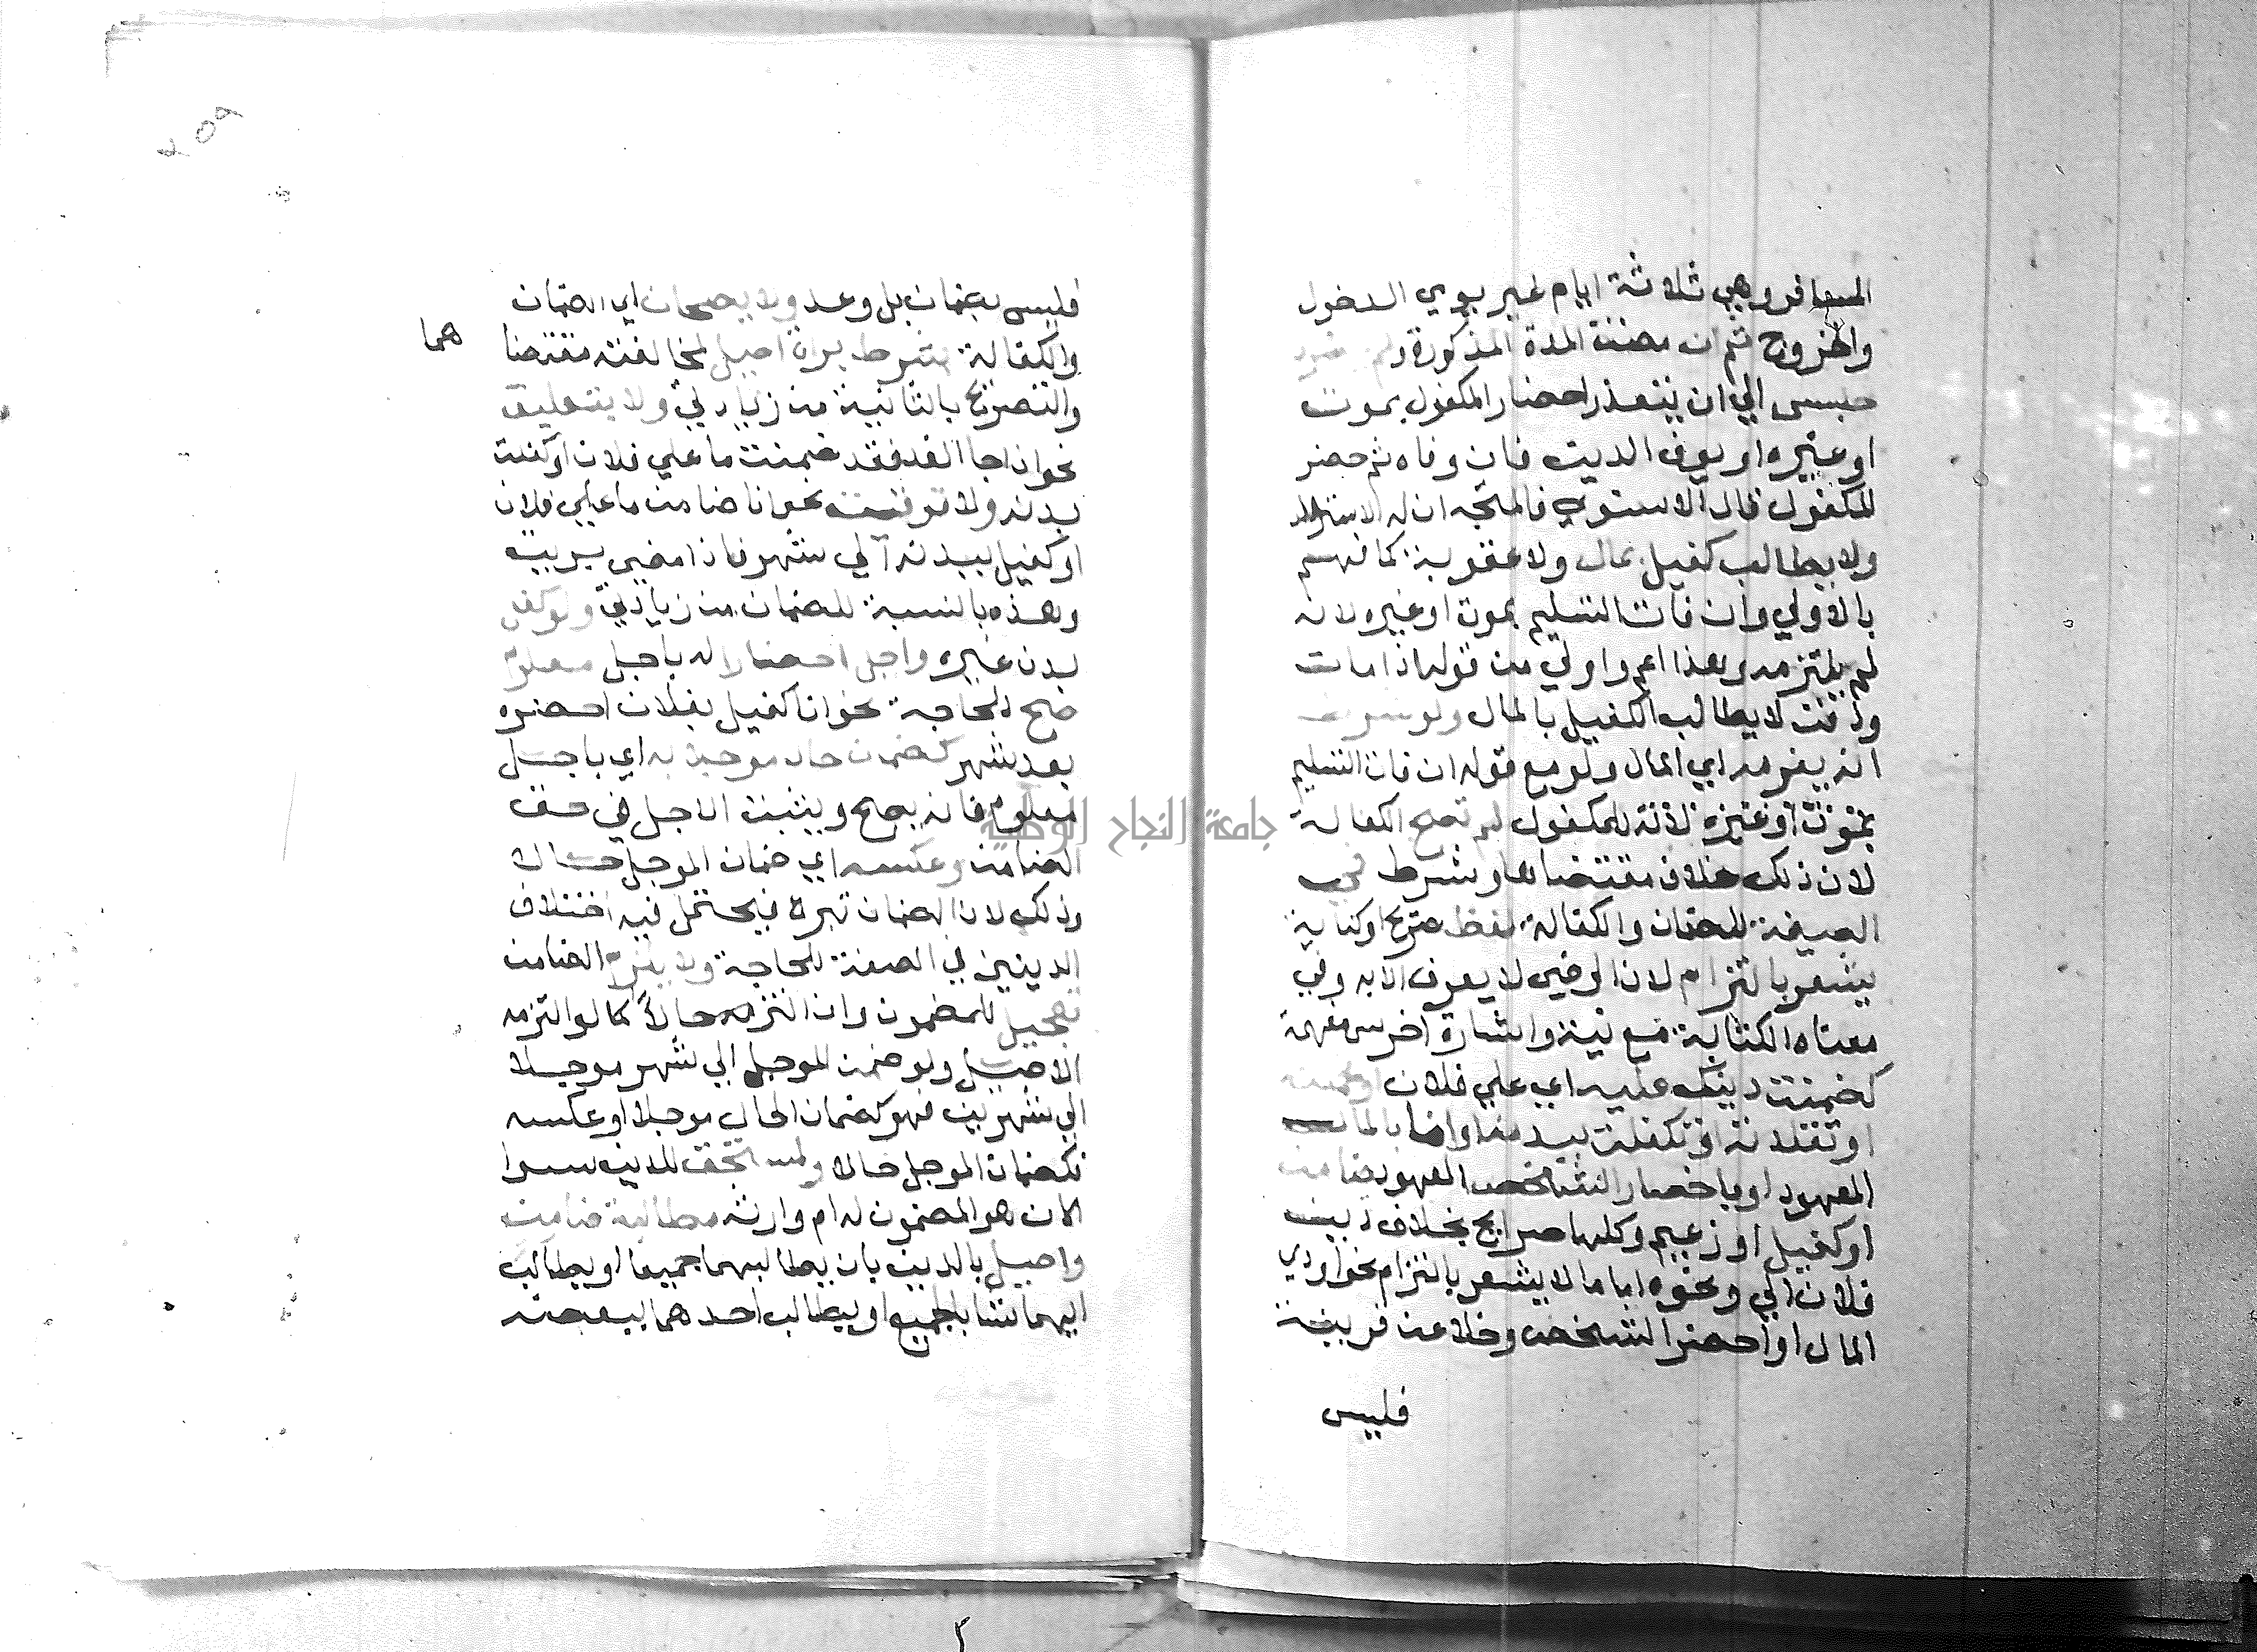 المسافر وهي ثلاثة ايام غير يومي الدخول
والخروج ثم ان مضت المدة المذكورة ولم يحضره
حبس الي ان يتعذر احضار المكفول بموت
او غيره او يوفي الدين فان وفاه ثم حضر
المكفول قال الاسنوي فالمتجه ان له الاسترداد
ولا يطالب كفيل بمال ولا عقوبة كما فهم
بالاولي وان فات التسليم بموت او غيره لانه
لم يلتزمه وهذا اعم واولي من قوله اذا مات
ودفن لا يطالب الكفيل بالمال ولو شرط
انه يغرمه اي المال ولو مع قوله ان فات التسليم
بموت او غيره للمكفول لم تصح الكفالة
لان ذلك خلاف مقتضاها وشرط في
الصيغة للضمان والكفالة لفظ صريح او كناية
يشعر بالتزام لان الرضى لا يعرف الا به وفي
معناه الكتابة مع نية واشارة اخرس مفهمة
كضمنت دينك عليه اي علي فلان او تحملته
او تقلدته او تكفلت ببدنه او انا بالمال
المعهود او باحضار الشخص المعهود ضامن
او كفيل او زعيم وكلها صرايح بخلاف دين
فلان الي ونحوه اما ما لا يشعر بالتزام نحو اودي
المال او احضر الشخص وخلا عن قرينة
فليس
٢٥٩
فليس بضمان بل وعد ولا يصحان اي الضمان
والكفالة بشرط براة اصيل لمخالفته مقتضا
هما
والتصريح بالثانية من زيادتي ولا بتعليق
نحو اذا جا الغد فقد ضمنت ما علي فلان او كفلت
بدنه ولا توقيت نحو انا ضامن ما علي فلان
او كفيل ببدنه الي شهر فاذا مضي بريت
وهذه بالنسبة للضمان من زيادتي ولو كفل
بدن غيره واجل احضارا له باجل معلوم
صح للحاجة نحو انا كفيل بفلان احضره
بعد شهر كضمان حال موجلا به اي باجل
معلوم فانه يصح ويثبت الاجل في حق
الضامن وعكسه اي ضمان الموجل حالا
وذلك لان الضمان تبرع فيحتمل فيه اختلاف
الدينين في الصفة للحاجة ولا يلزم الضامن
تعجيل للمضمون وان التزمه حالا كما لو التزمه
الاصيل ولو ضمن الموجل الي شهر موجلا
الي شهرين فهو كضمان الحال موجلا او عكسه
فكضمان الموجل حالا ولمستحق للدين سوا
اكان هو المضمون له ام وارثه مطالبة ضامن
واصيل بالدين بان يطالبهما جميعا او يطالب
ايهما شا بالجميع او يطالب احدهما ببعضه
جامعة النجاح الوطنية